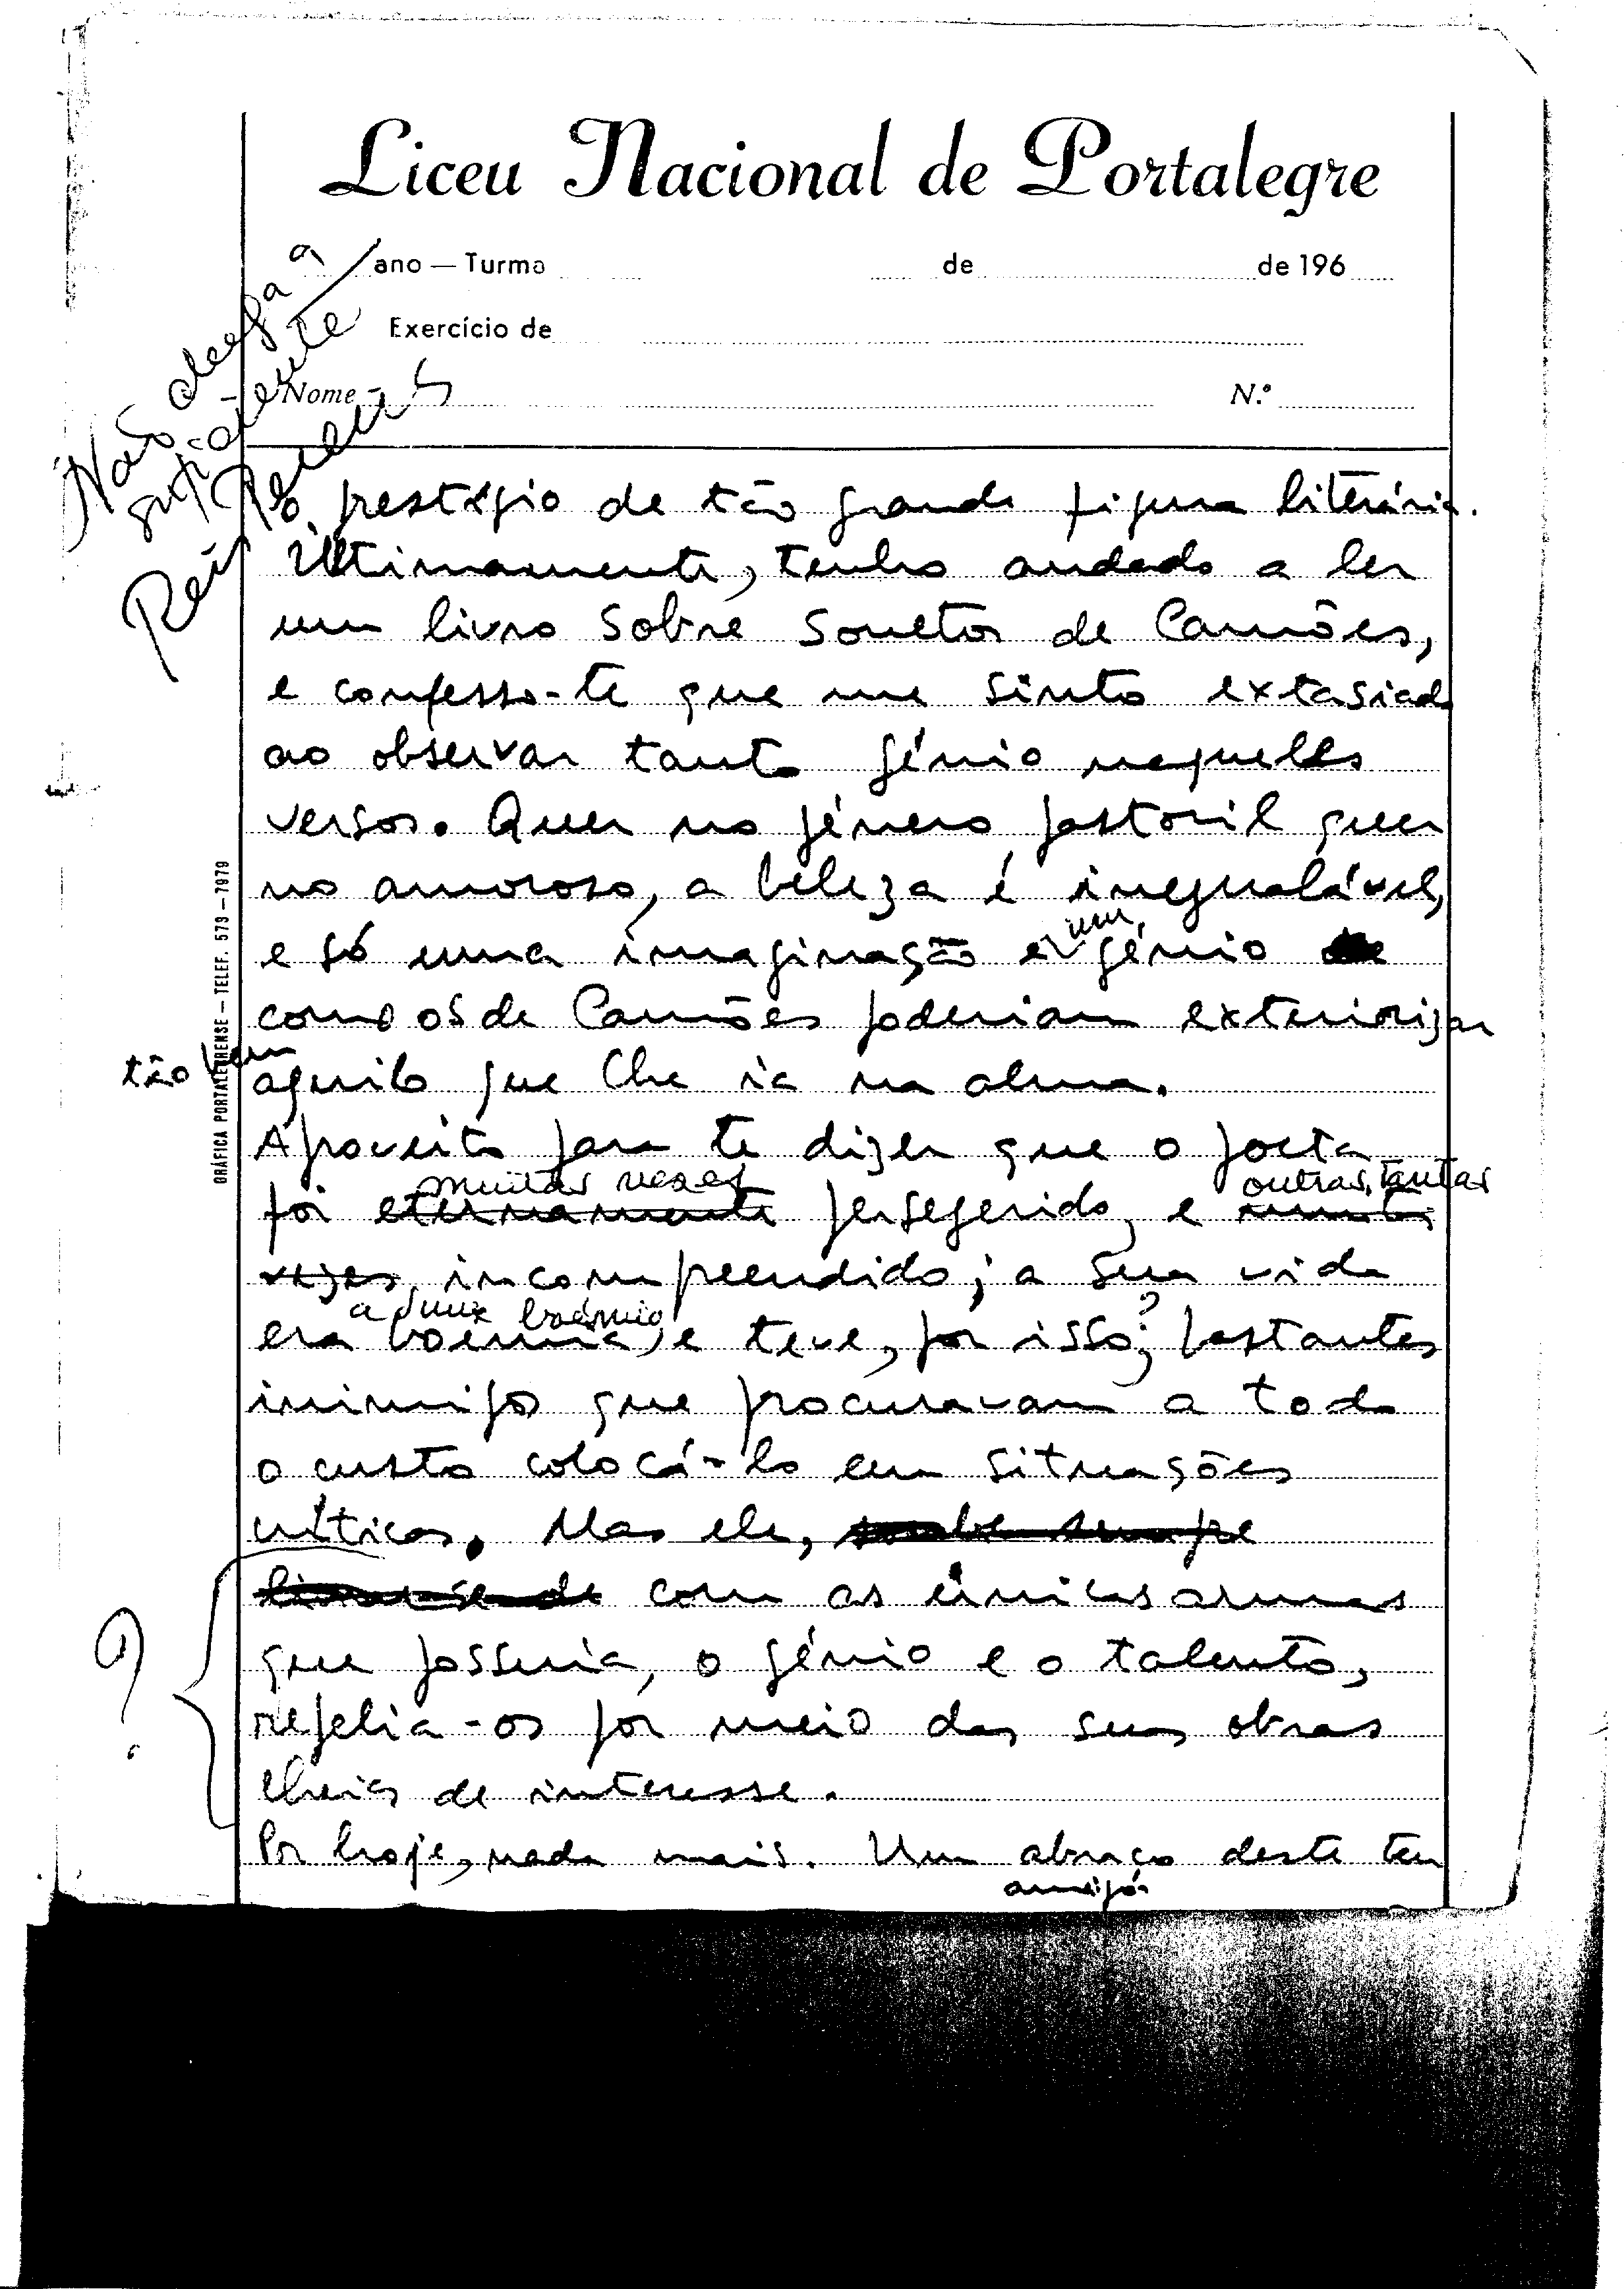 Liceu Nacional de Portalegre
ano — Turma de de 196
Exercício de
Nome N.º
Não chega a
suficiente
Reis Pereira
o prestígio de tão grande figura literária.
Ultimamente, tenho andado a ler
um livro sobre Sonetos de Camões,
e confesso-te que me sinto extasiado
ao observar tanto génio naqueles
versos. Quer no género pastoril quer
no amoroso, a beleza é inegualável,
e só uma imaginação e um génio
como os de Camões poderiam exteriorizar
tão bem
aquilo que lhe ia na alma.
Aproveito para te dizer que o poeta
muitas vezes outras tantas
foi eternamente perseguido, e muitas
vezes incompreendido; a sua vida
a dum boémio
era boémia, e teve, por isso, ? bastantes
inimigos que procuravam a todo
o custo colocá-lo em situações
críticas. Mas ele, soube sempre
livrar-se de com as únicas armas
que possuia, o génio e o talento,
?
repelia-os por meio das suas obras
cheias de interesse.
Por hoje, nada mais. Um abraço deste teu
amigo
GRÁFICA PORTALEGRENSE — TELEF. 573 — 7979